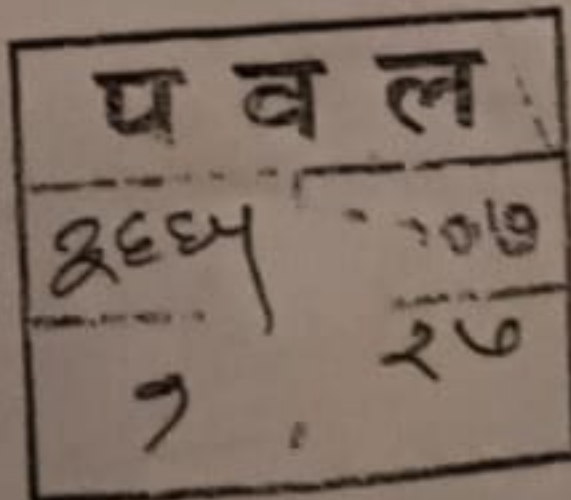 प व ल
२६६५
१ २७